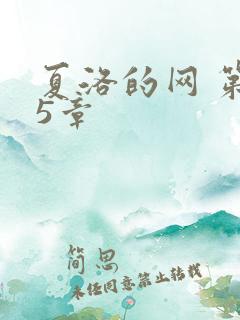 夏洛的网 第
5章
简思
未经同意禁止转载